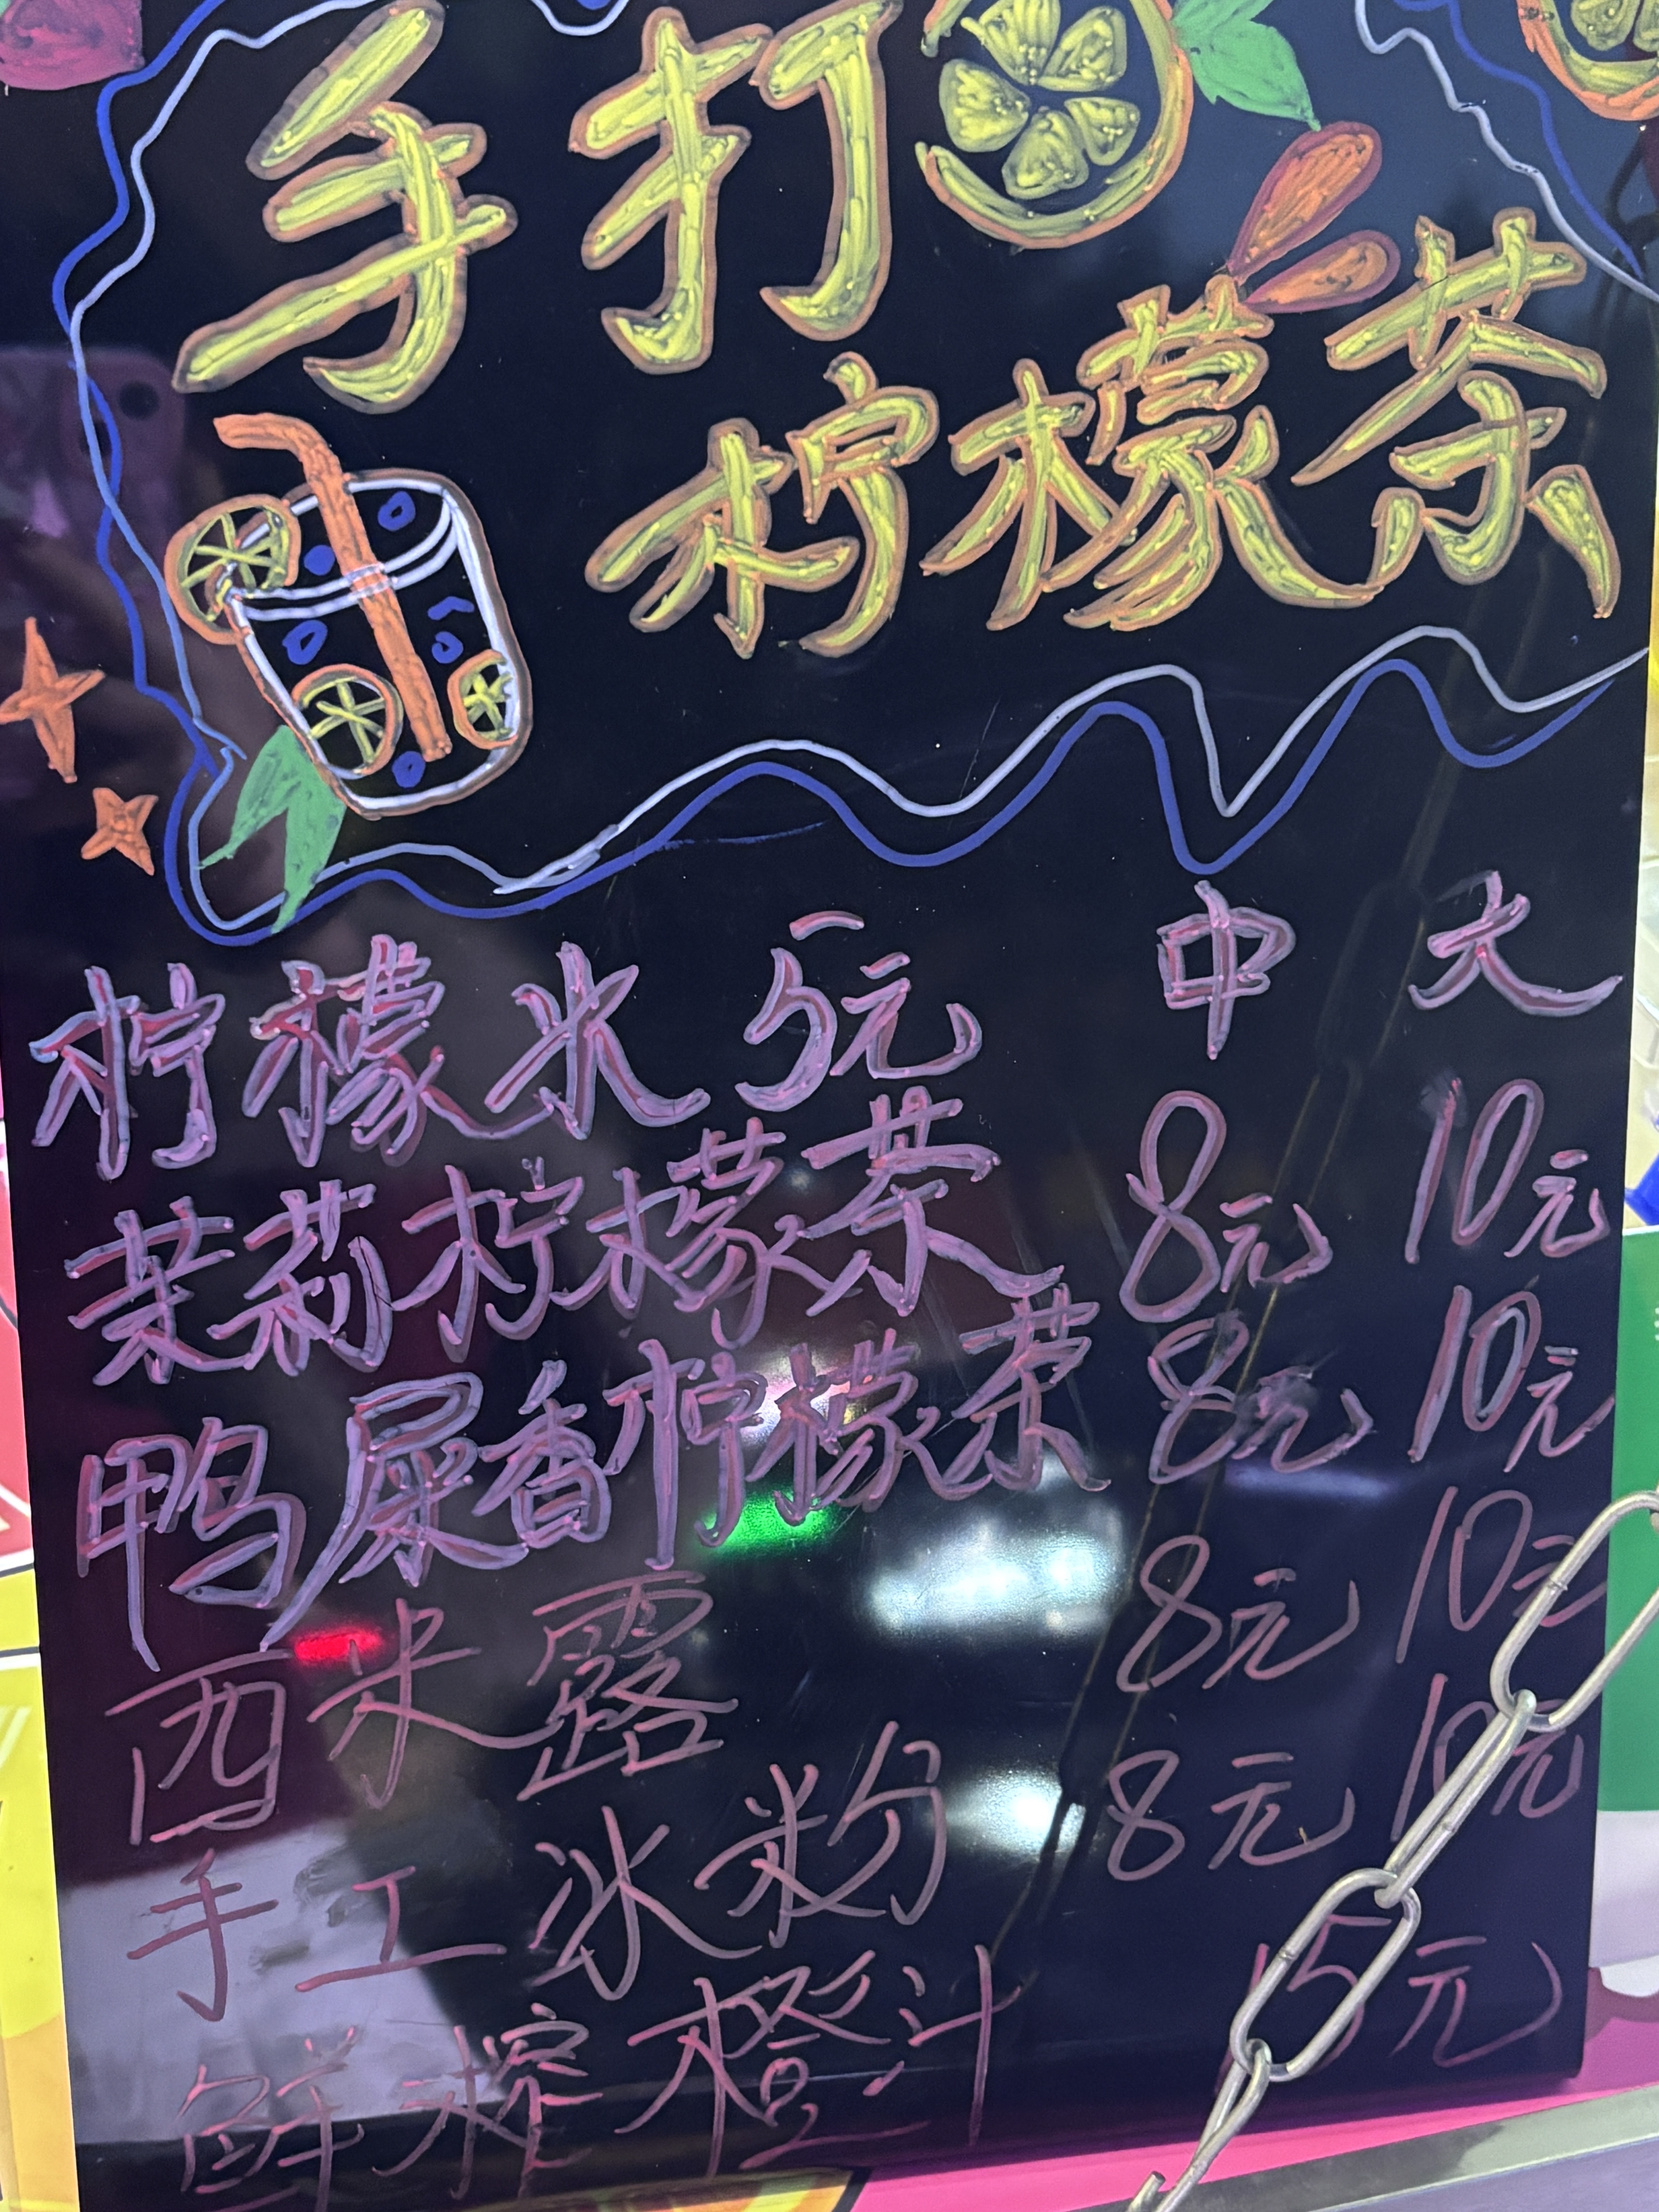 手打
柠檬茶
柠檬水 5元 中 大
茉莉柠檬茶 8元 10元
鸭屎香柠檬茶 8元 10元
西米露 8元 10元
手工冰粉 8元 10元
鲜榨橙汁 15元